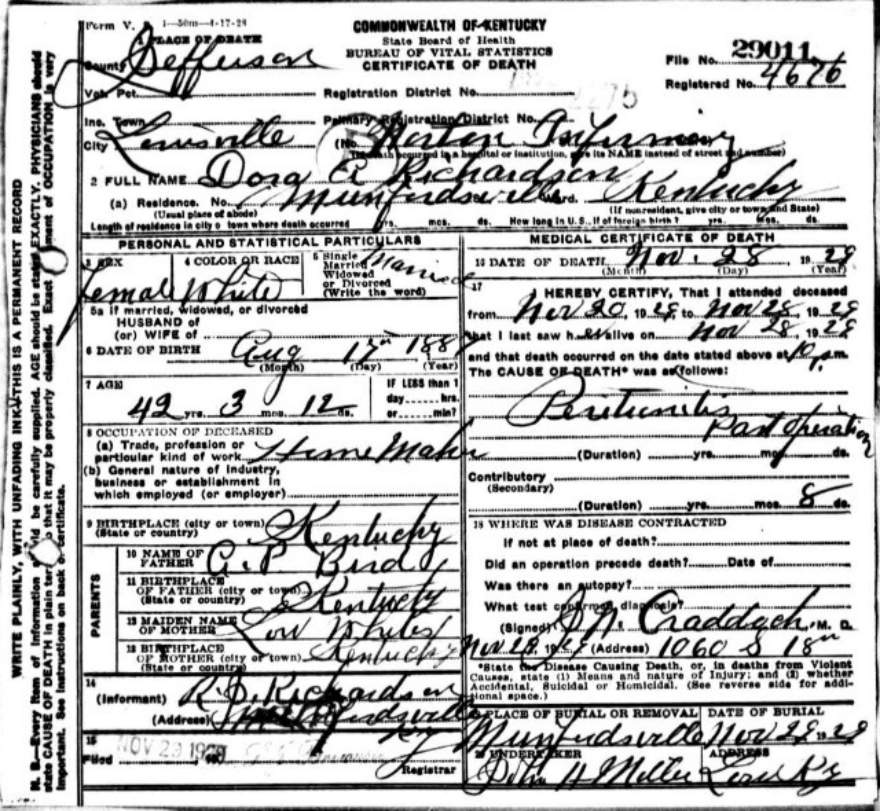 Form V. 1-50m-4-17-28
COMMONWEALTH OF KENTUCKY
State Board of Health
BUREAU OF VITAL STATISTICS
CERTIFICATE OF DEATH
1 PLACE OF DEATH
County Jefferson
File No. 29011
Registered No. 4676
Vot. Pct. Registration District No.
Inc. Town Primary Registration District No.
City Louisville (No. Norton Infirmary
(If death occurred in a hospital or institution, give its NAME instead of street and number)
2 FULL NAME Dora A Richardson
(a) Residence. No. Munfordsville Ward. Kentucky
(Usual place of abode) (If nonresident, give city or town and State)
Length of residence in city or town where death occurred yrs. mos. ds. How long in U.S., if of foreign birth? yrs. mos. ds.
PERSONAL AND STATISTICAL PARTICULARS
3 SEX Female
4 COLOR OR RACE White
5 Single Married Widowed or Divorced (Write the word) Married
5a If married, widowed, or divorced
HUSBAND of
(or) WIFE of
6 DATE OF BIRTH Aug 17th 188
(Month) (Day) (Year)
7 AGE
42 yrs. 3 mos. 12 ds.
IF LESS than 1
day hrs.
or min?
8 OCCUPATION OF DECEASED
(a) Trade, profession or
particular kind of work Home Maker
(b) General nature of industry,
business or establishment in
which employed (or employer)
9 BIRTHPLACE (city or town)
(State or country) Kentucky
PARENTS
10 NAME OF
FATHER A. P. Bird
11 BIRTHPLACE
OF FATHER (city or town)
(State or country) Kentucky
12 MAIDEN NAME
OF MOTHER Lou
13 BIRTHPLACE
OF MOTHER (city or town)
(State or country) Kentucky
14
(Informant) R. D. Richardson
(Address) Munfordsville Ky
15
Filed NOV 29 19
Registrar
MEDICAL CERTIFICATE OF DEATH
16 DATE OF DEATH Nov. 28, 1929
(Month) (Day) (Year)
17
I HEREBY CERTIFY, That I attended deceased
from Nov 20, 1929, to Nov 28, 1929
that I last saw her alive on Nov 28, 1929
and that death occurred on the date stated above at 10 p.m.
The CAUSE OF DEATH* was as follows:
Peritonitis
Post operation
(Duration) yrs. mos. ds.
Contributory
(Secondary)
(Duration) yrs. mos. 8 ds.
18 WHERE WAS DISEASE CONTRACTED
If not at place of death?
Did an operation precede death? Date of
Was there an autopsy?
What test confirmed diagnosis?
(Signed) Craddock, M. D.
Nov 29, 19 (Address) 1060 S 18th
*State the Disease Causing Death, or, in deaths from Violent
Causes, state (1) Means and nature of Injury; and (2) whether
Accidental, Suicidal or Homicidal. (See reverse side for addi-
tional space.)
19 PLACE OF BURIAL OR REMOVAL
Munfordsville
DATE OF BURIAL
Nov 29 1929
20 UNDERTAKER
John H Miller
ADDRESS
Lou Ky
WRITE PLAINLY, WITH UNFADING INK—THIS IS A PERMANENT RECORD
N. B.—Every item of information should be carefully supplied. AGE should be stated EXACTLY. PHYSICIANS should
state CAUSE OF DEATH in plain terms so that it may be properly classified. Exact statement of OCCUPATION is very
important. See instructions on back of certificate.